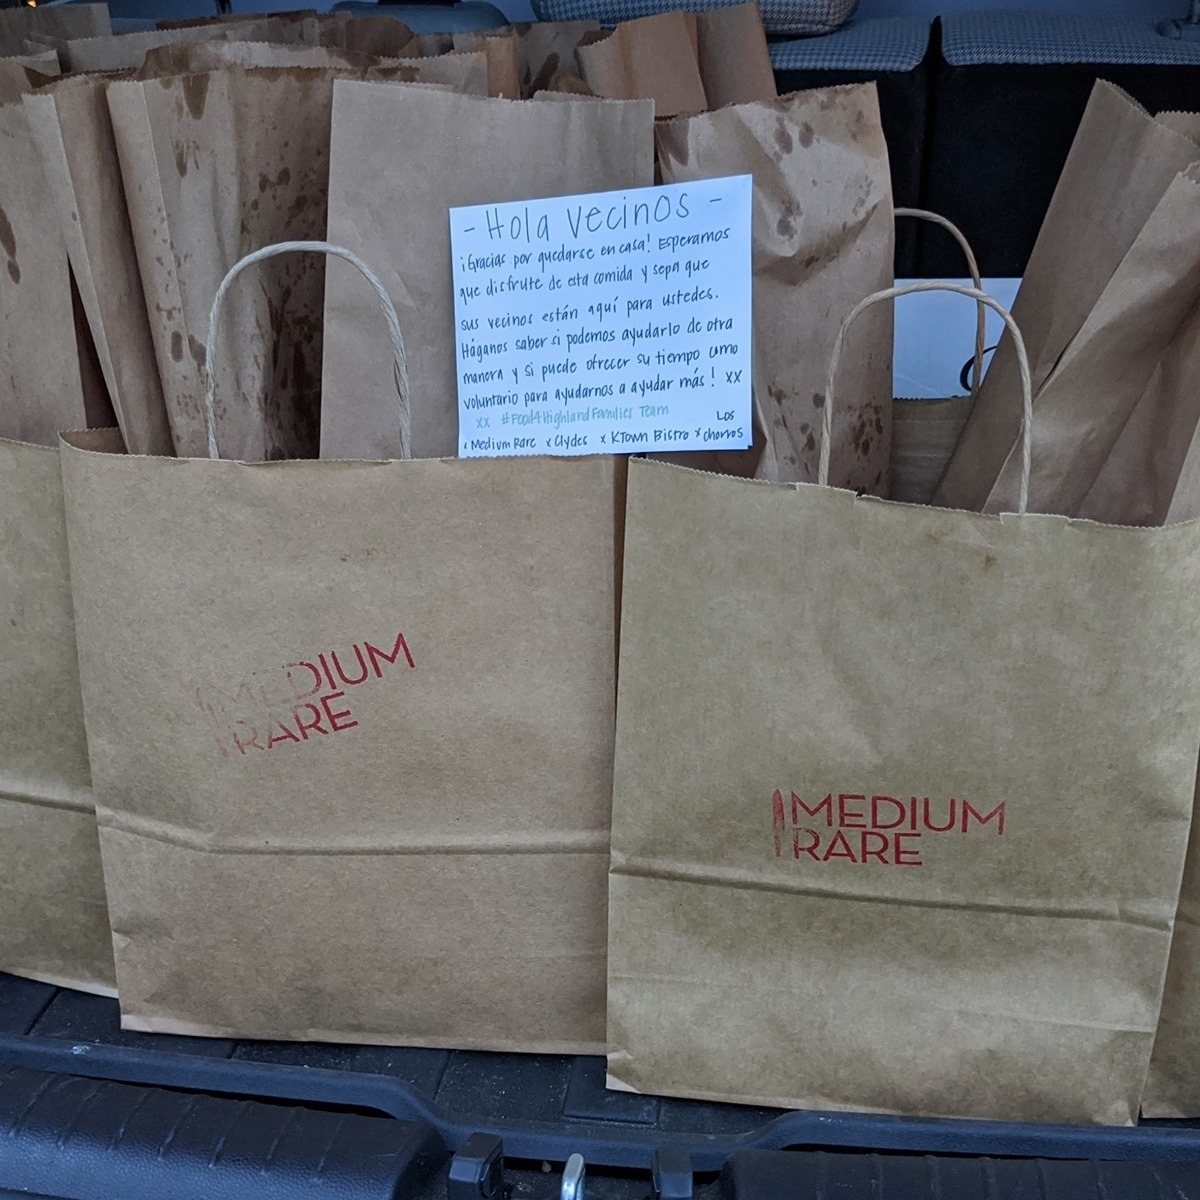 - Hola vecinos -
¡Gracias por quedarse en casa! Esperamos
que disfrute de esta comida y sepa que
sus vecinos están aquí para ustedes.
Háganos saber si podemos ayudarlo de otra
manera y si puede ofrecer su tiempo como
voluntario para ayudarnos a ayudar más! xx
xx #Food4HighlandFamilies Team
x Medium Rare x Clydes x KTown Bistro x Los chorros
MEDIUM
RARE
MEDIUM
RARE